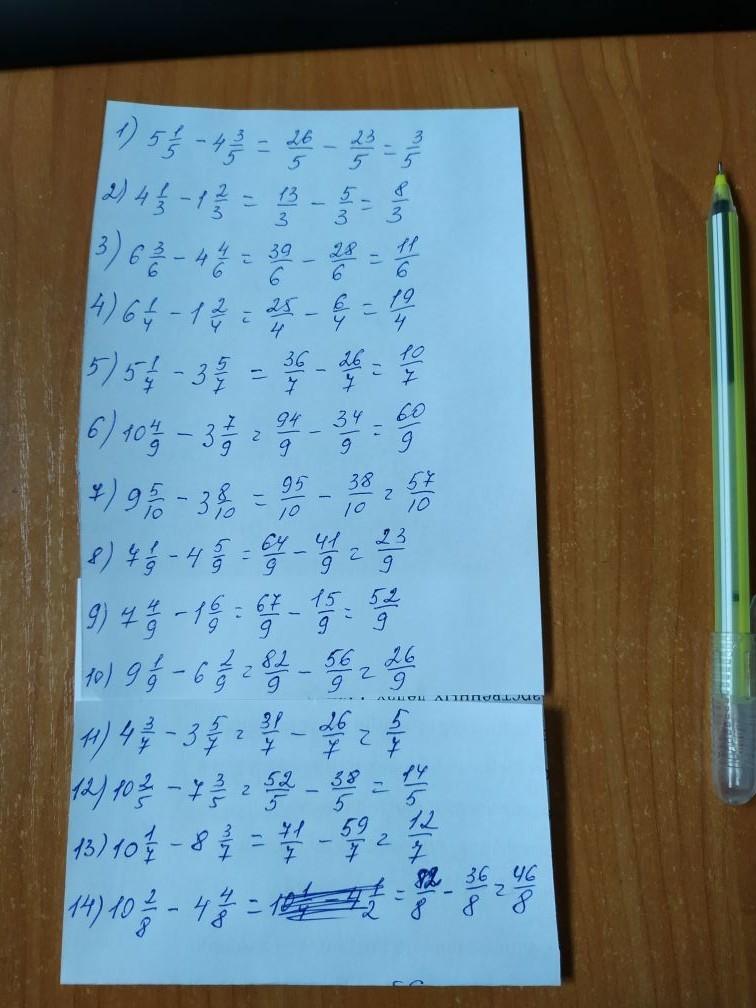 1) 5 1/5 - 4 3/5 = 26/5 - 23/5 = 3/5
2) 4 1/3 - 1 2/3 = 13/3 - 5/3 = 8/3
3) 6 3/6 - 4 4/6 = 39/6 - 28/6 = 11/6
4) 6 1/4 - 1 2/4 = 25/4 - 6/4 = 19/4
5) 5 1/7 - 3 5/7 = 36/7 - 26/7 = 10/7
6) 10 4/9 - 3 7/9 = 94/9 - 34/9 = 60/9
7) 9 5/10 - 3 8/10 = 95/10 - 38/10 = 57/10
8) 7 1/9 - 4 5/9 = 64/9 - 41/9 = 23/9
9) 7 4/9 - 1 6/9 = 67/9 - 15/9 = 52/9
10) 9 1/9 - 6 2/9 = 82/9 - 56/9 = 26/9
11) 4 3/7 - 3 5/7 = 31/7 - 26/7 = 5/7
12) 10 2/5 - 7 3/5 = 52/5 - 38/5 = 14/5
13) 10 1/7 - 8 3/7 = 71/7 - 59/7 = 12/7
14) 10 2/8 - 4 4/8 = 82/8 - 36/8 = 46/8